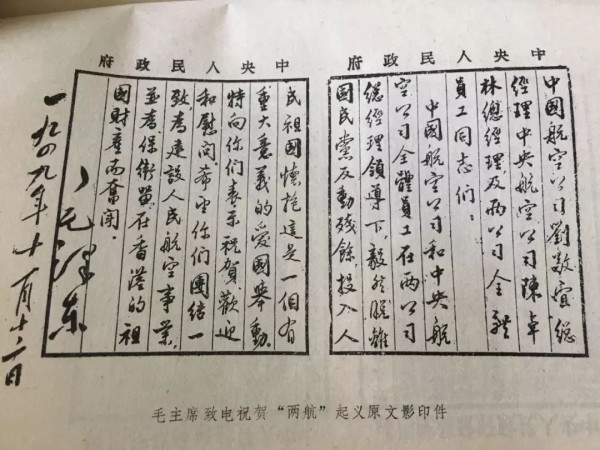 中央人民政府
中國航空公司劉敬宜總
經理中央航空公司陳卓
林總經理及兩公司全體
員工同志們：
中國航空公司和中央航
空公司全體員工在兩公司
總經理領導下，毅然脫離
國民黨反動殘餘投入人
中央人民政府
民祖國懷抱這是一個有
重大意義的愛國舉動.
特向你們表示祝賀歡迎
和慰問.希望你們團結一
致，為建設人民航空事業，
並為保衛留在香港的祖
國財產而奮鬥.
毛澤东
一九四九年十一月十二日
毛主席致电祝贺“两航”起义原文影印件